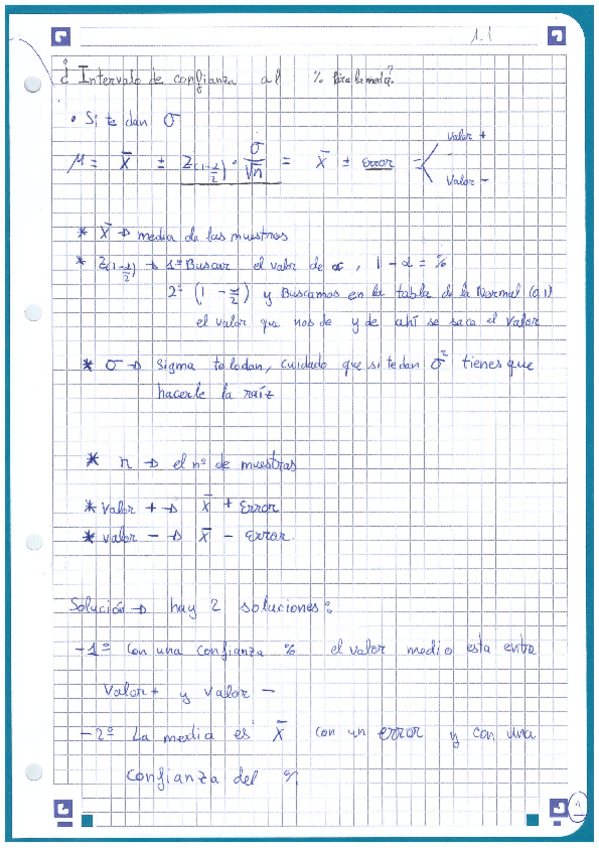 1.1
¿ Intervalo de confianza al % para la media?
• Si te dan σ
valor +
μ = x̄ ± Z(1-α/2) · σ/√n = x̄ ± error
valor -
* x̄ → media de las muestras
* Z(1-α/2) → 1º Buscar el valor de α, 1 - α = %
2º (1 - α/2) y Buscamos en la tabla de la Normal (0,1)
el valor que nos de y de ahí se saca el valor
* σ → Sigma te lo dan, cuidado que si te dan σ² tienes que
hacerle la raíz
* n → el nº de muestras
* valor + → x̄ + Error
* valor - → x̄ - Error.
Solución → hay 2 soluciones:
- 1º Con una confianza % el valor medio esta entre
Valor + y valor -
- 2º La media es x̄ con un error y con una
confianza del %